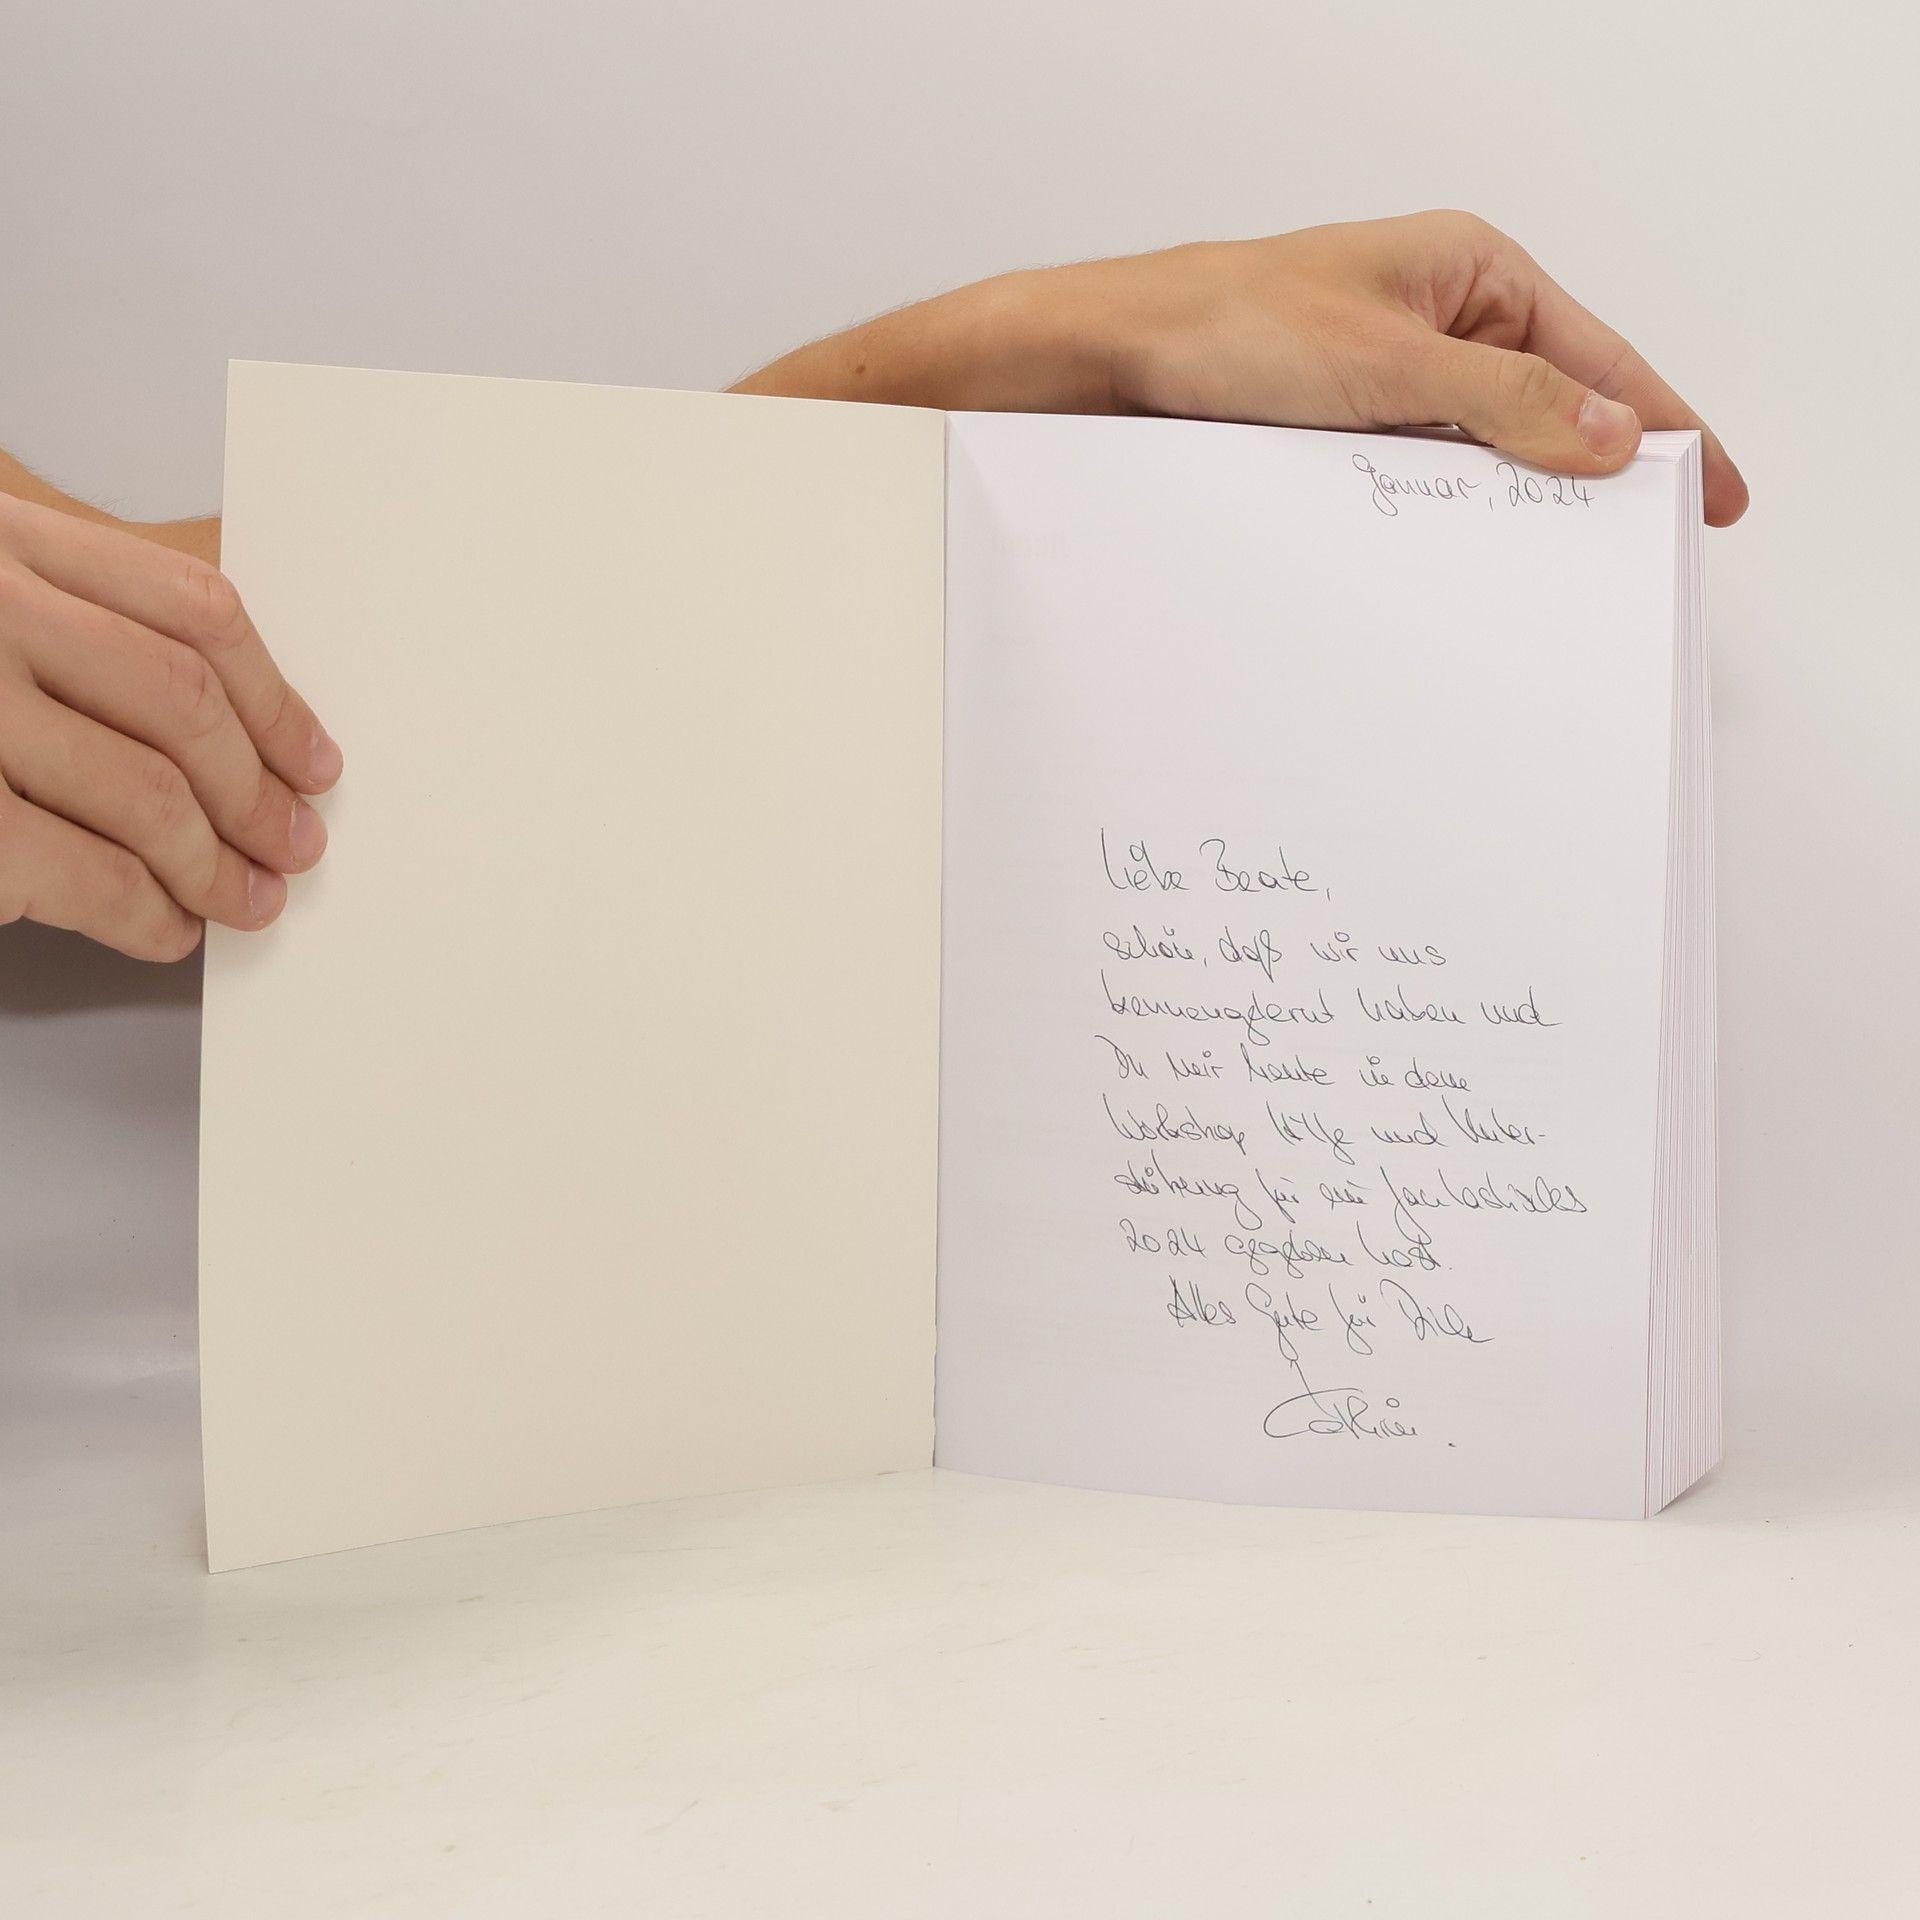 Januar, 2024
Liebe Beate,
schön, daß wir uns
kennengelernt haben und
Du mir heute in dem
Workshop Hilfe und Unter-
stützung für ein fantastisches
2024 gegeben hast.
Alles Gute für Dich